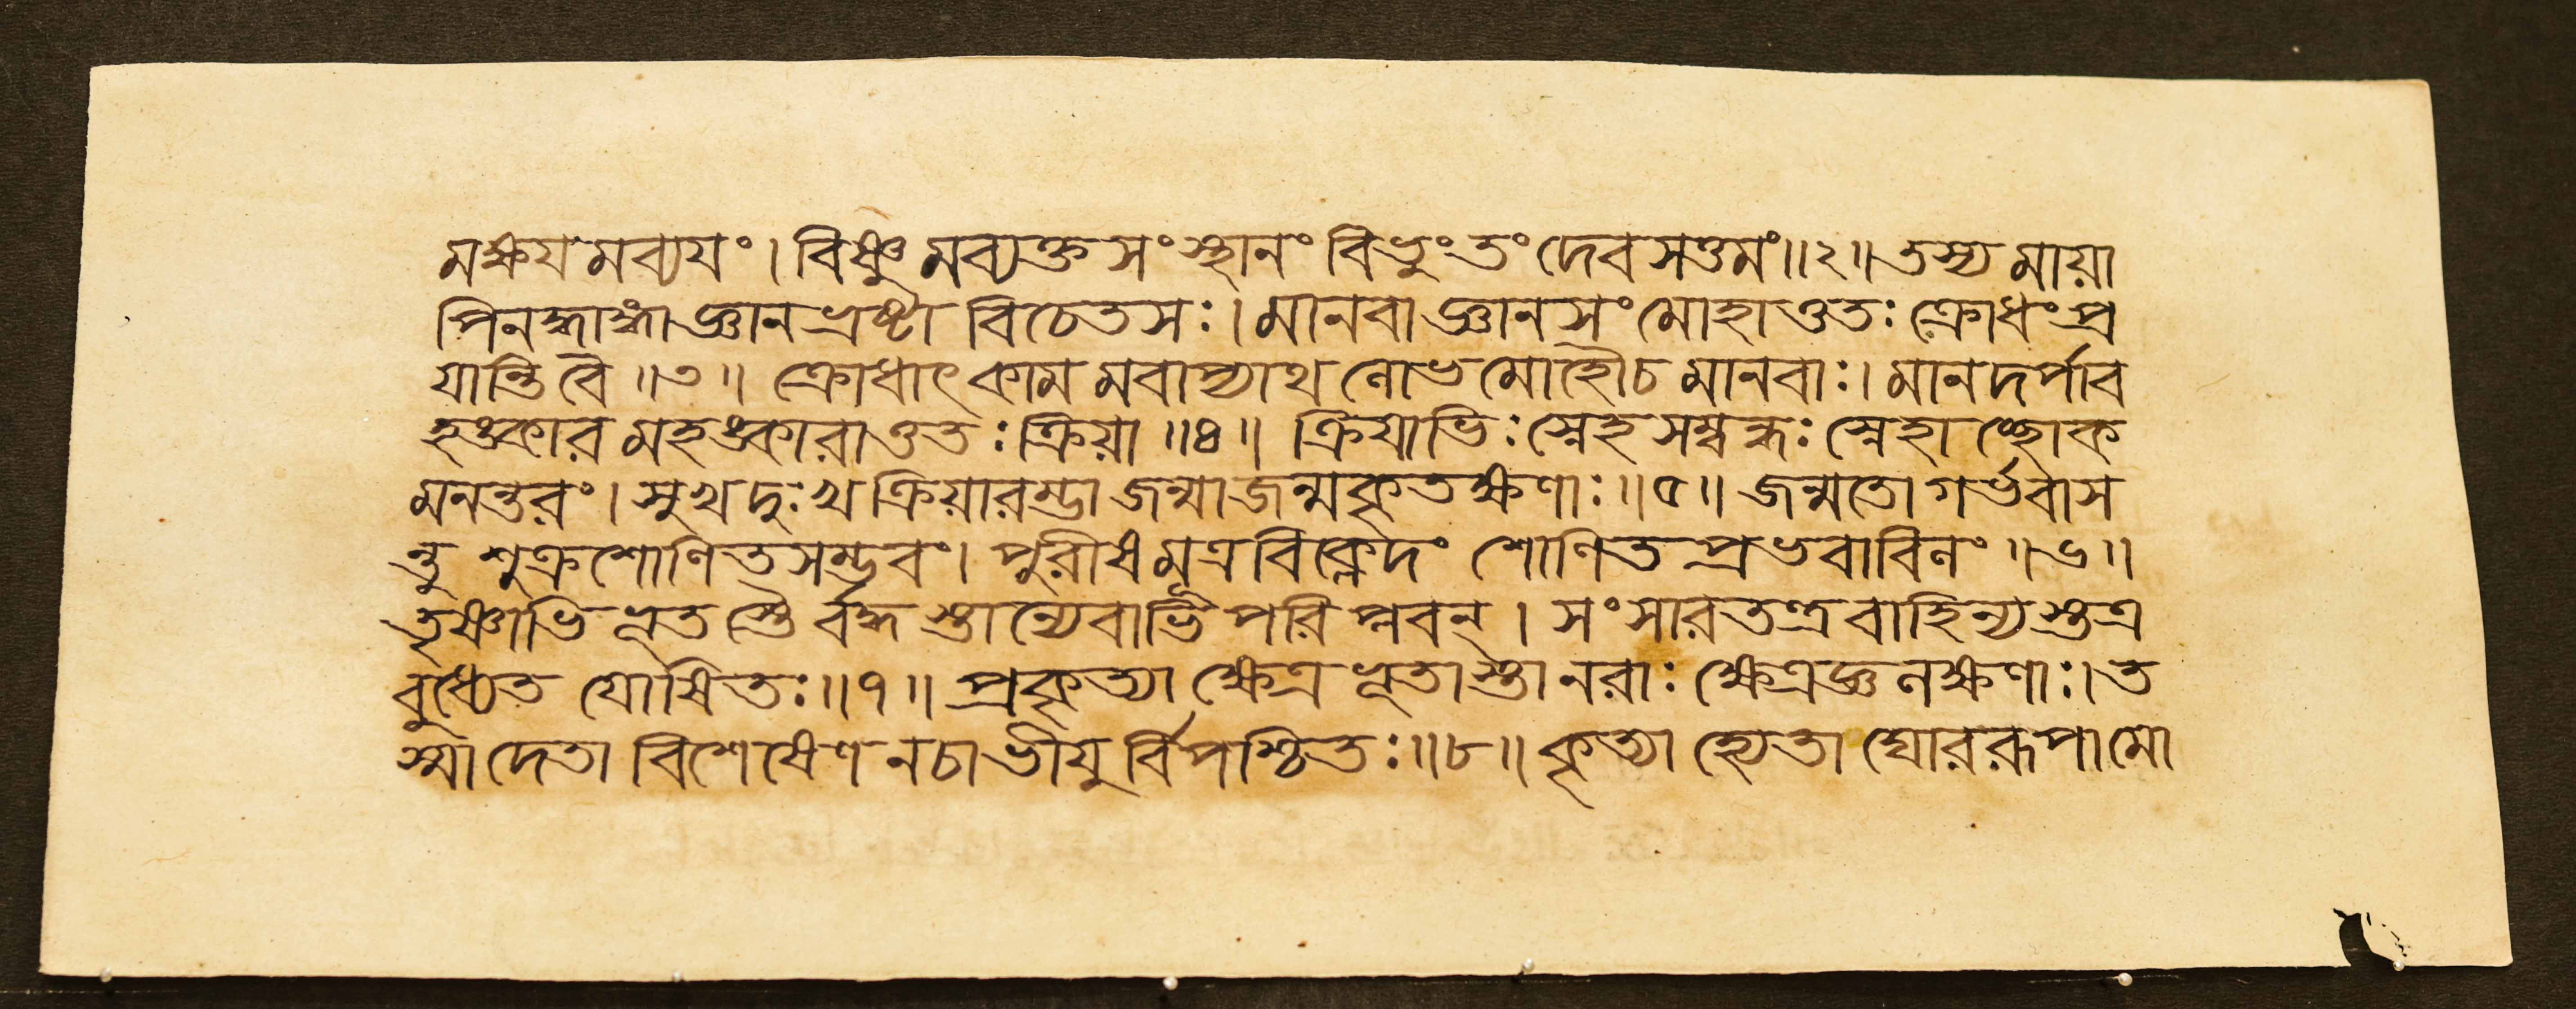 মক্ষয়মব্যয়ং। বিষ্ণুমব্যক্তসংস্থানং বিভুং তং দেবসত্তমং॥২॥ তস্য মায়া
পিনদ্ধাঙ্গা জ্ঞানভ্রষ্টা বিচেতসঃ। মানবা জ্ঞানসংমোহাত্ততঃ ক্রোধং প্র
যান্তি বৈ॥৩॥ ক্রোধাৎ কামমবাপ্যাথ লোভমোহৌ চ মানবাঃ। মানদর্পাব
হঙ্কারমহঙ্কারাত্ততঃ ক্রিয়া॥৪॥ ক্রিয়াভিঃ স্নেহসম্বন্ধঃ স্নেহাচ্ছোক
মনন্তরং। সুখদুঃখক্রিয়ারম্ভা জন্মাজন্মকৃতক্ষণাঃ॥৫॥ জন্মতো গর্ভবাস
ন্তু শুক্রশোণিতসম্ভবং। পুরীষমূত্রবিক্লেদং শোণিতপ্রভবাবিলং॥৬॥
তৃষ্ণাভিভূতস্তৈর্বদ্ধস্তান্যেবাভিপরিপ্লবন্। সংসারতন্ত্রবাহিন্যস্তত্র
বুধ্যেত যোষিতঃ॥৭॥ প্রকৃত্যা ক্ষেত্রভূতাস্তা নরাঃ ক্ষেত্রজ্ঞলক্ষণাঃ। ত
স্মাদেতা বিশেষেণ নচাভীয়ুর্বিপশ্চিতঃ॥৮॥ কৃত্যা হ্যেতা ঘোররূপা মো